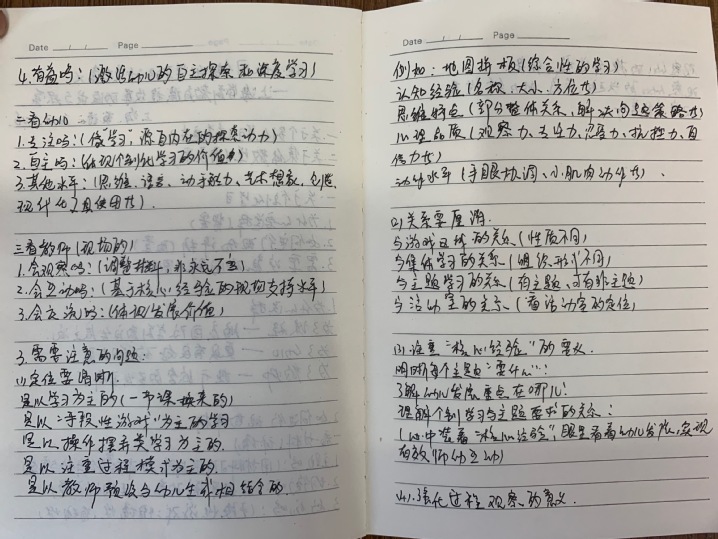 Date / / Page
4.有趣吗:(激发幼儿的自主探索和深度学习)
二看幼儿
1.专注吗:(像"学习",源自内在的探索动力)
2.自主吗:(体现个别化学习的价值)
3.其他水平:(思维、语言、动手能力、艺术想象、创造
现代化工具使用等)
三看教师(现场的)
1.会观察吗:(调整材料,永远不
2.会互动吗:(基于核心经验的现场支持水平)
3.会交流的:(体现发展价值)
3.需要注意的问题:
(1)定位要清晰.
是以学习为主的(一节课换来的)
是以"手段性游戏"为主的学习
是以操作摆弄类学习为主的.
是以注重过程模式为主的.
是以教师预设与幼儿生成相结合的.
Date / / Page
例如:地图拼板(综合性的学习)
认知经验(名称、大小、方位等)
思维特点(部分整体关系、解决问题策略等)
心理品质(观察力、专注力、忍耐力、抗挫力、自
信力等)
动作水平(手眼协调、小肌肉动作等).
(2)关系要厘清.
与游戏区域的关系(性质不同)
与集体学习的关系(组织形式不同)
与主题学习的关系(有主题、有非主题)
与活动室的关系(看活动室的定位)
(3)注重"核心经验"的要义.
明晰每个主题"要什么":
了解幼儿发展重点在哪儿:
理解个别学习与主题要求的关系:
(心中装着"核心经验",眼里看着幼儿发展,实现
有效师幼互动)
(4)强化过程观察的意义.